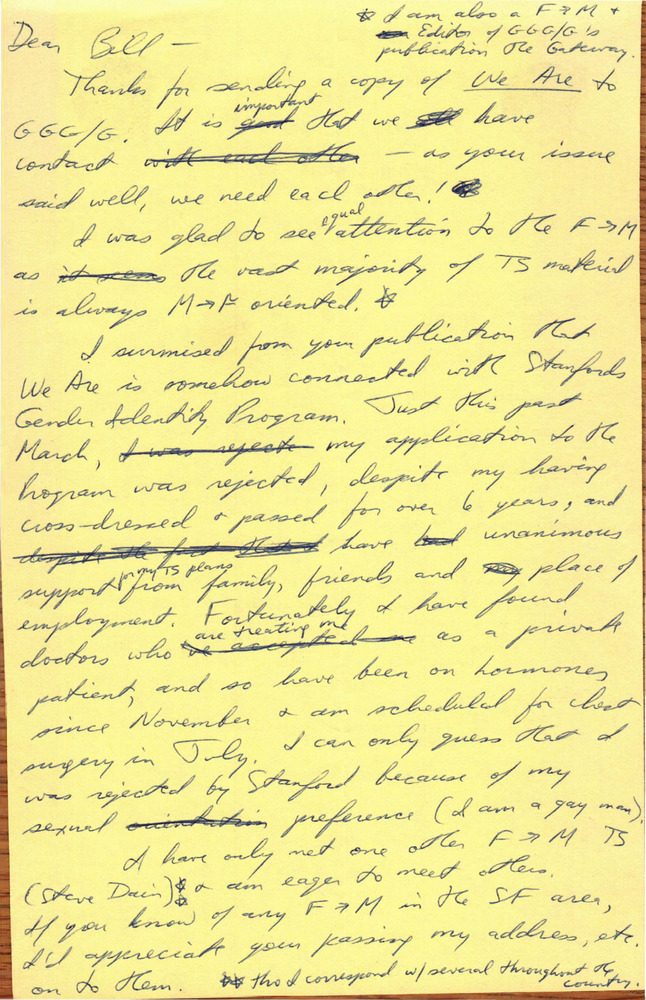 * I am also a F→M +
Editor of GGG/G's
publication The Gateway.
Dear Bill —
Thanks for sending a copy of We Are to
important
GGG/G. It is good that we all have
contact with each other — as your issue
said well, we need each other!
equal
I was glad to see attention to the F→M
as it seems the vast majority of TS material
is always M→F oriented. *
I surmised from your publication that
We Are is somehow connected with Stanfords
Gender Identity Program. Just this past
March, I was rejecte my application to the
Program was rejected, despite my having
cross-dressed + passed for over 6 years, and
despite the fact that I have had unanimous
for my TS plans
support from family, friends and my place of
employment. Fortunately I have found
are treating me
doctors who 've accepted me as a private
patient, and so have been on hormones
since November + am scheduled for chest
surgery in July. I can only guess that I
was rejected by Stanford because of my
sexual orientation preference (I am a gay man).
I have only met one other F→M TS
(Steve Dain)** + am eager to meet others.
If you know of any F→M in the SF area,
I'd appreciate your passing my address, etc.
on to them. ** tho I correspond w/ several throughout the
country.